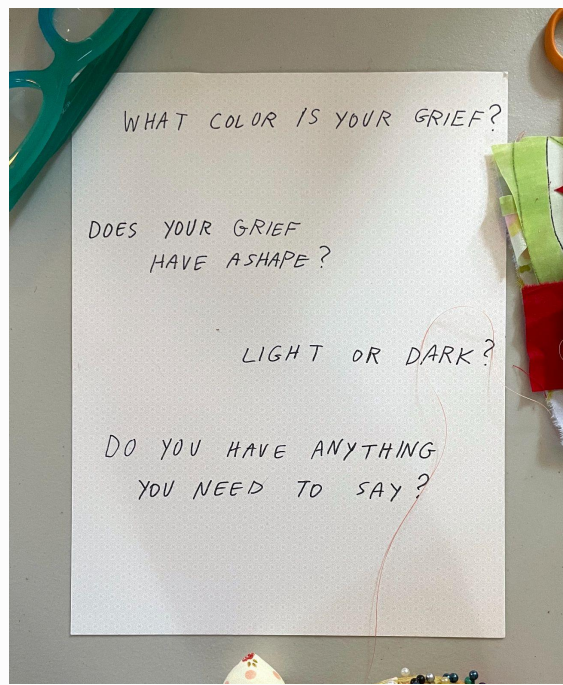 WHAT COLOR IS YOUR GRIEF?
DOES YOUR GRIEF
HAVE A SHAPE?
LIGHT OR DARK?
DO YOU HAVE ANYTHING
YOU NEED TO SAY?